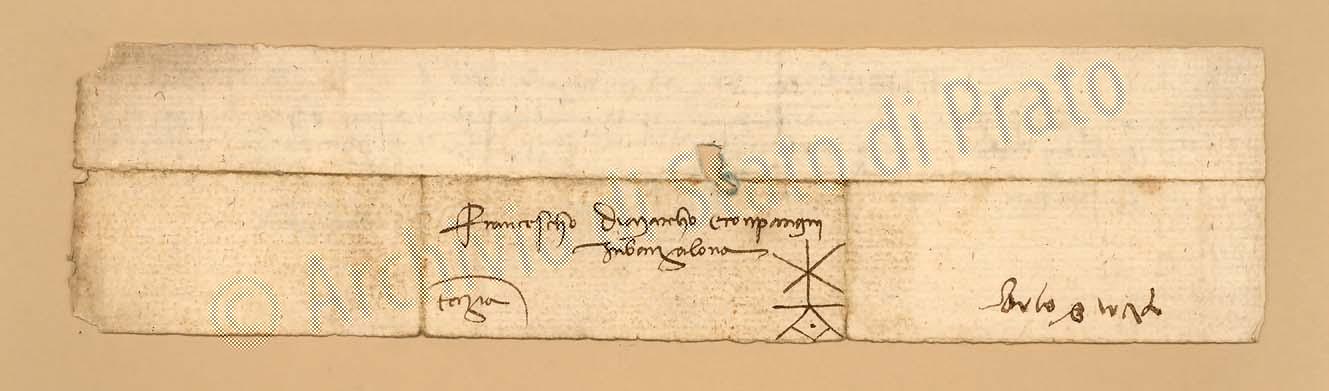 Francescho di Marcho e conpangni
in Barzalona
terza
© Archivio di Stato di Prato